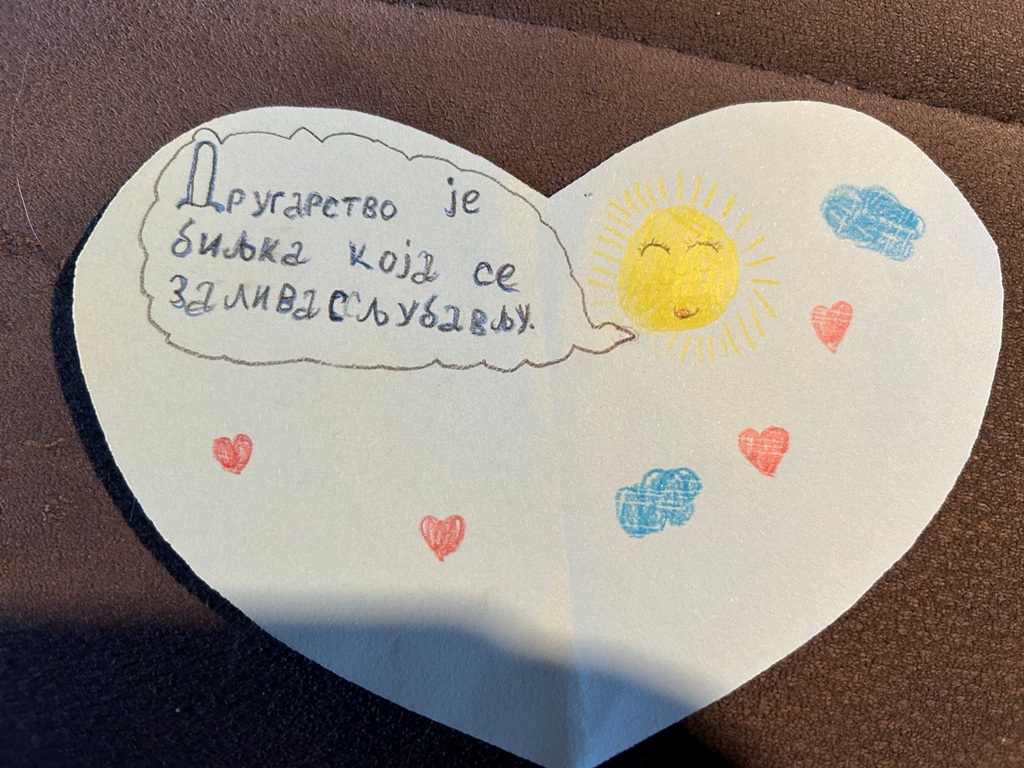 Другарство је
биљка која се
залива с љубављу.